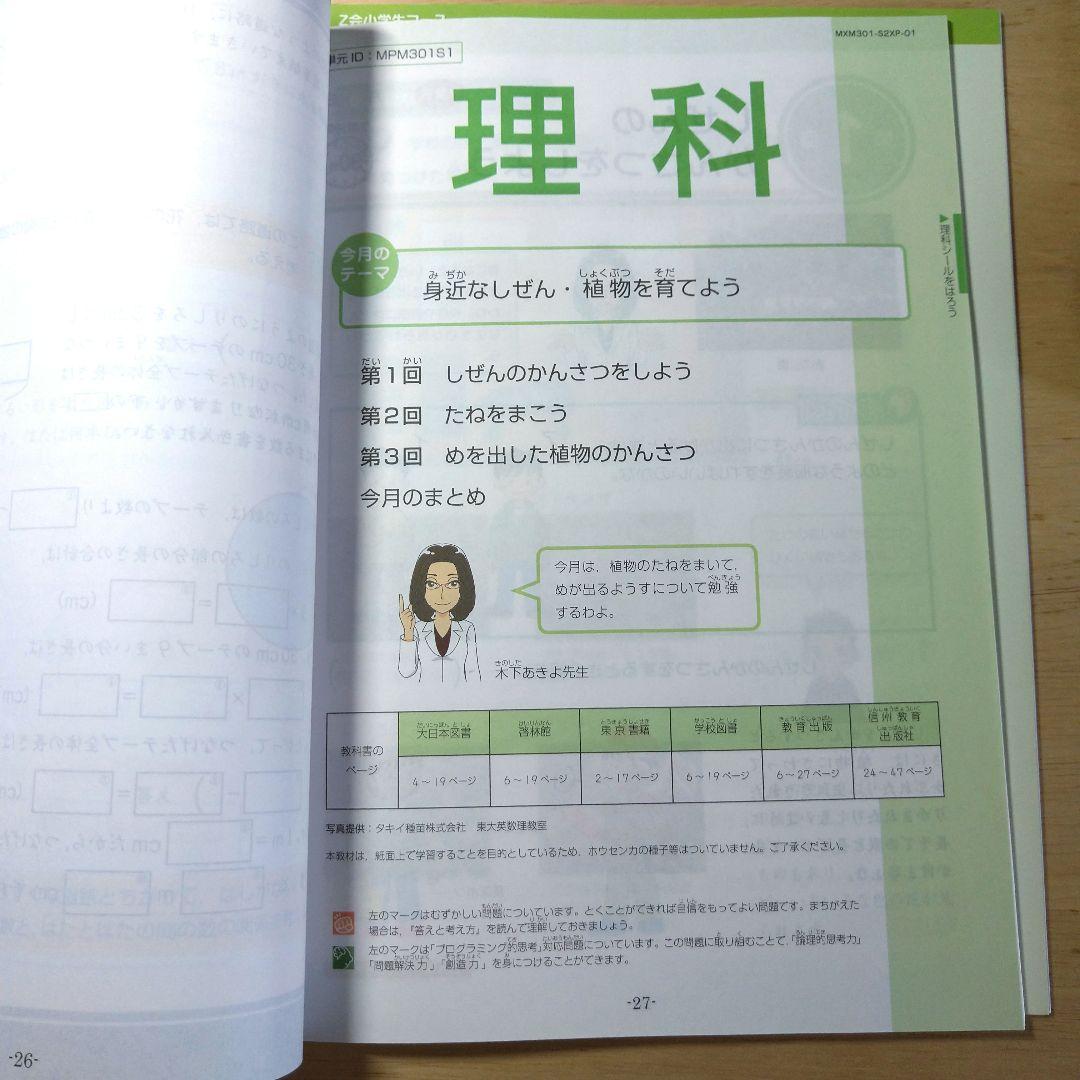 Z会小学生コース
単元ID：MPM301S1
MXM301-S2XP-01
理科
今月の
テーマ
身近なしぜん・植物を育てよう
▶理科シールをはろう
第1回 しぜんのかんさつをしよう
第2回 たねをまこう
第3回 めを出した植物のかんさつ
今月のまとめ
今月は，植物のたねをまいて，
めが出るようすについて勉強
するわよ。
木下あきよ先生
教科書の
ページ
大日本図書 啓林館 東京書籍 学校図書 教育出版 信州教育
出版社
4～19ページ 6～19ページ 2～17ページ 6～19ページ 6～27ページ 24～47ページ
写真提供：タキイ種苗株式会社 東大英数理教室
本教材は，紙面上で学習することを目的としているため，ホウセンカの種子等はついていません。ご了承ください。
左のマークはむずかしい問題についています。とくことができれば自信をもってよい問題です。まちがえた
場合は，「答えと考え方」を読んで理解しておきましょう。
左のマークは「プログラミング的思考」対応問題についています。この問題に取り組むことで，「論理的思考力」
「問題解決力」「創造力」を身につけることができます。
-27-
-26-